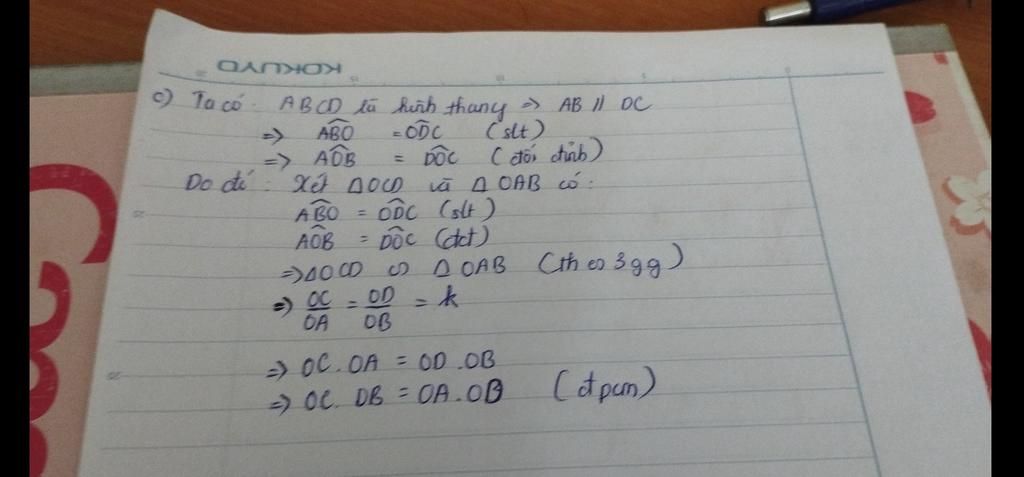 KOKUYO
c) Ta có: ABCD là hình thang => AB // DC
=> ABO = ODC (slt)
=> AOB = DOC (đối đỉnh)
Do đó: Xét ΔOCD và ΔOAB có:
ABO = ODC (slt)
AOB = DOC (đct)
=> ΔOCD ∽ ΔOAB (th eo 3 gg)
=> OC/OA = OD/OB = k
=> OC . OA = OD . OB
=> OC . OB = OA . OD (đpcm)